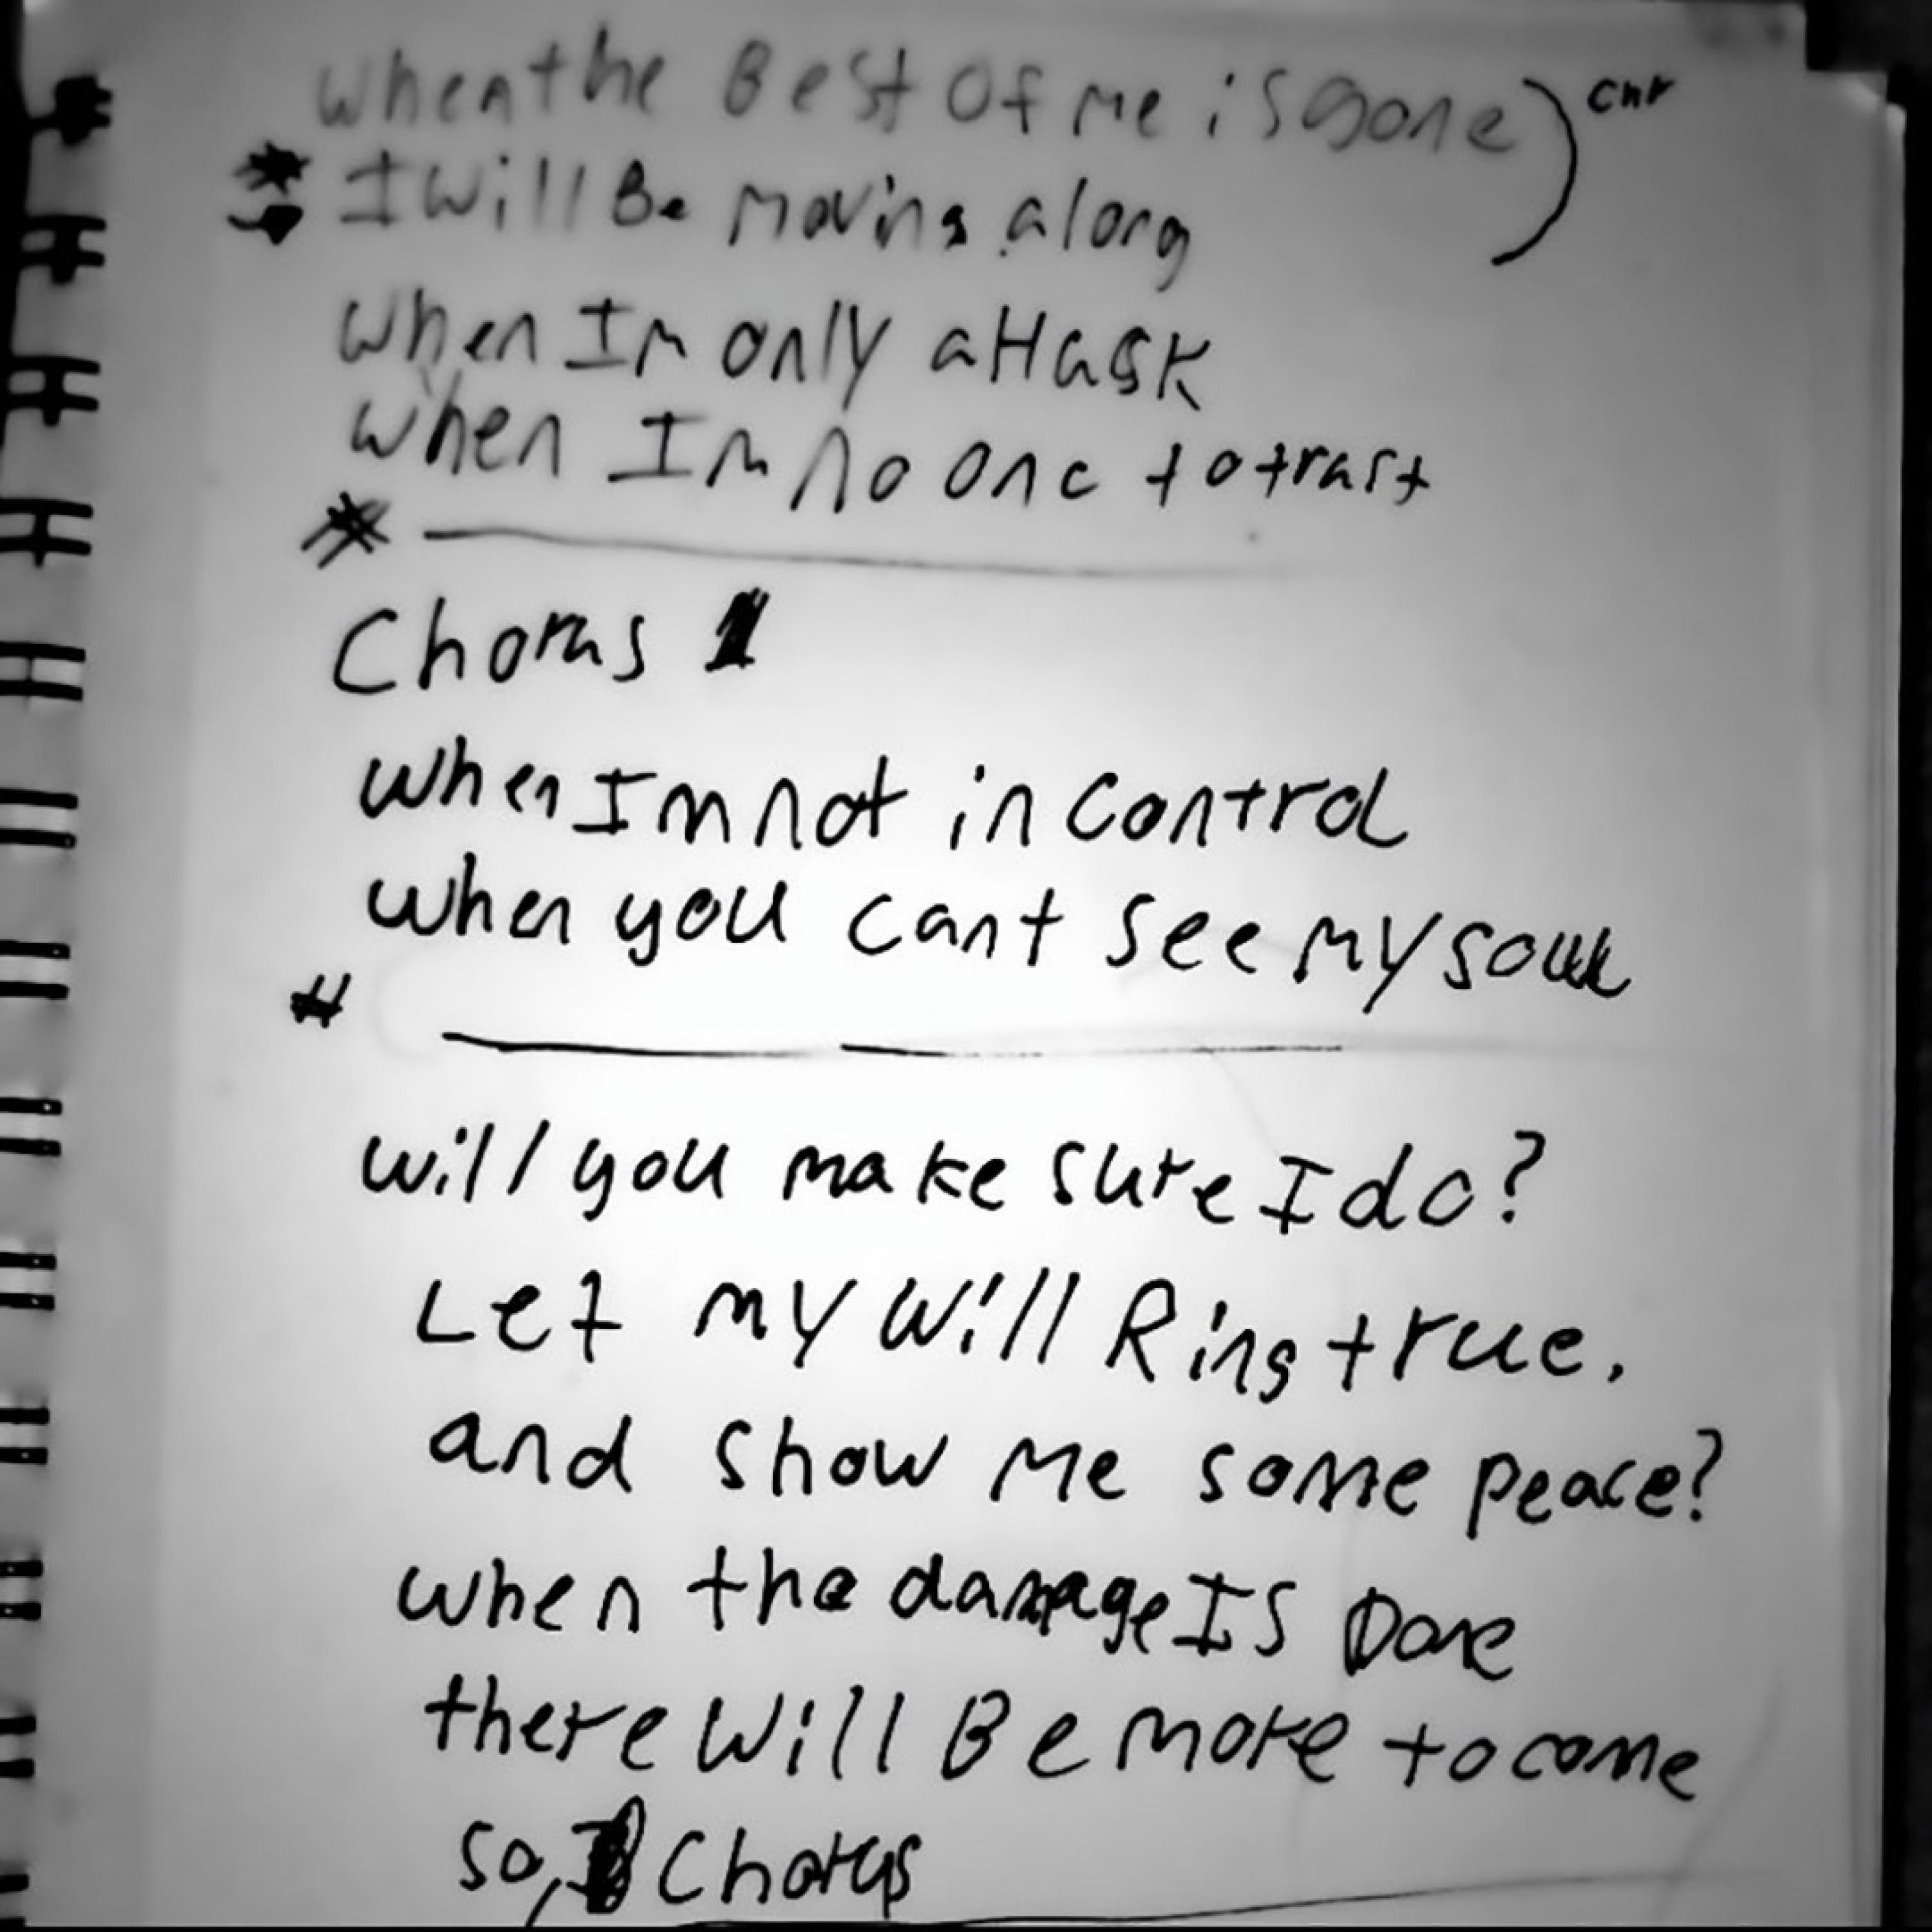 When the Best Of me is gone) chr
I Will Be moving along
When Im only a Husk
When Im no one to trust
Chorus 1
when Im not in control
when you cant see my soul
will you make sure I do?
Let my Will Ring true.
and show me some peace?
when the damage IS Done
there Will Be more to come
so, Chorus